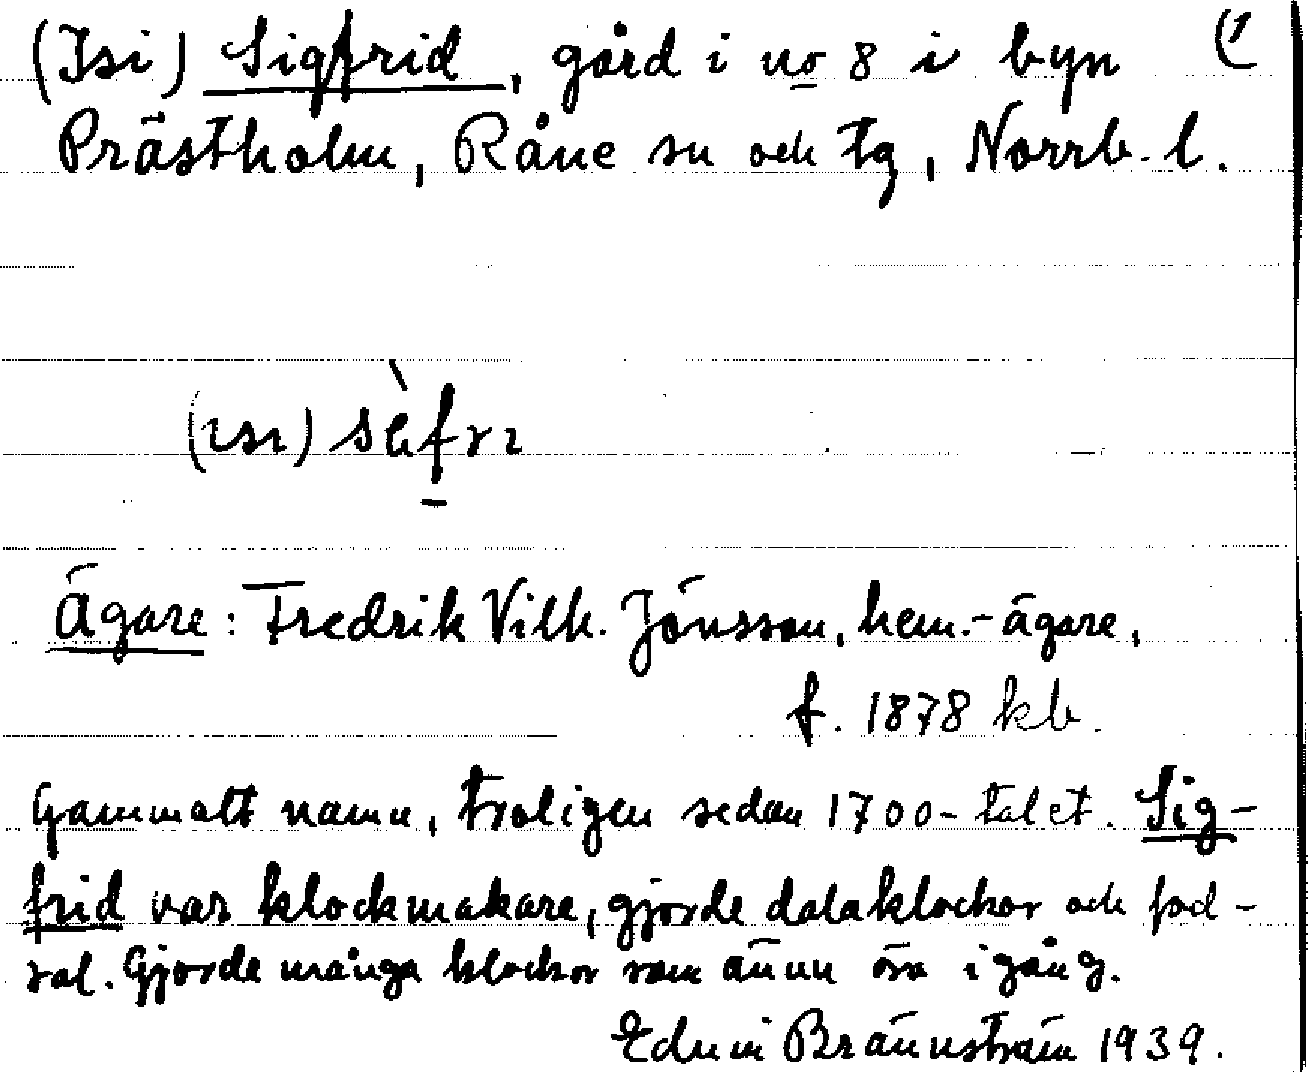 (Isi) Sigfrid, gård i no 8 i byn (1
Prästholm, Råne sn och tg, Norrb. l.
(ısı) sèfrı
Ägare: Fredrik Vilh. Jönsson, hem.-ägare,
f. 1878 kb.
Gammalt namn, troligen sedan 1700-talet. Sig-
frid var klockmakare, gjorde dalaklockor och fod-
ral. Gjorde många klockor som ännu äro i gång.
Edvin Brännström 1939.